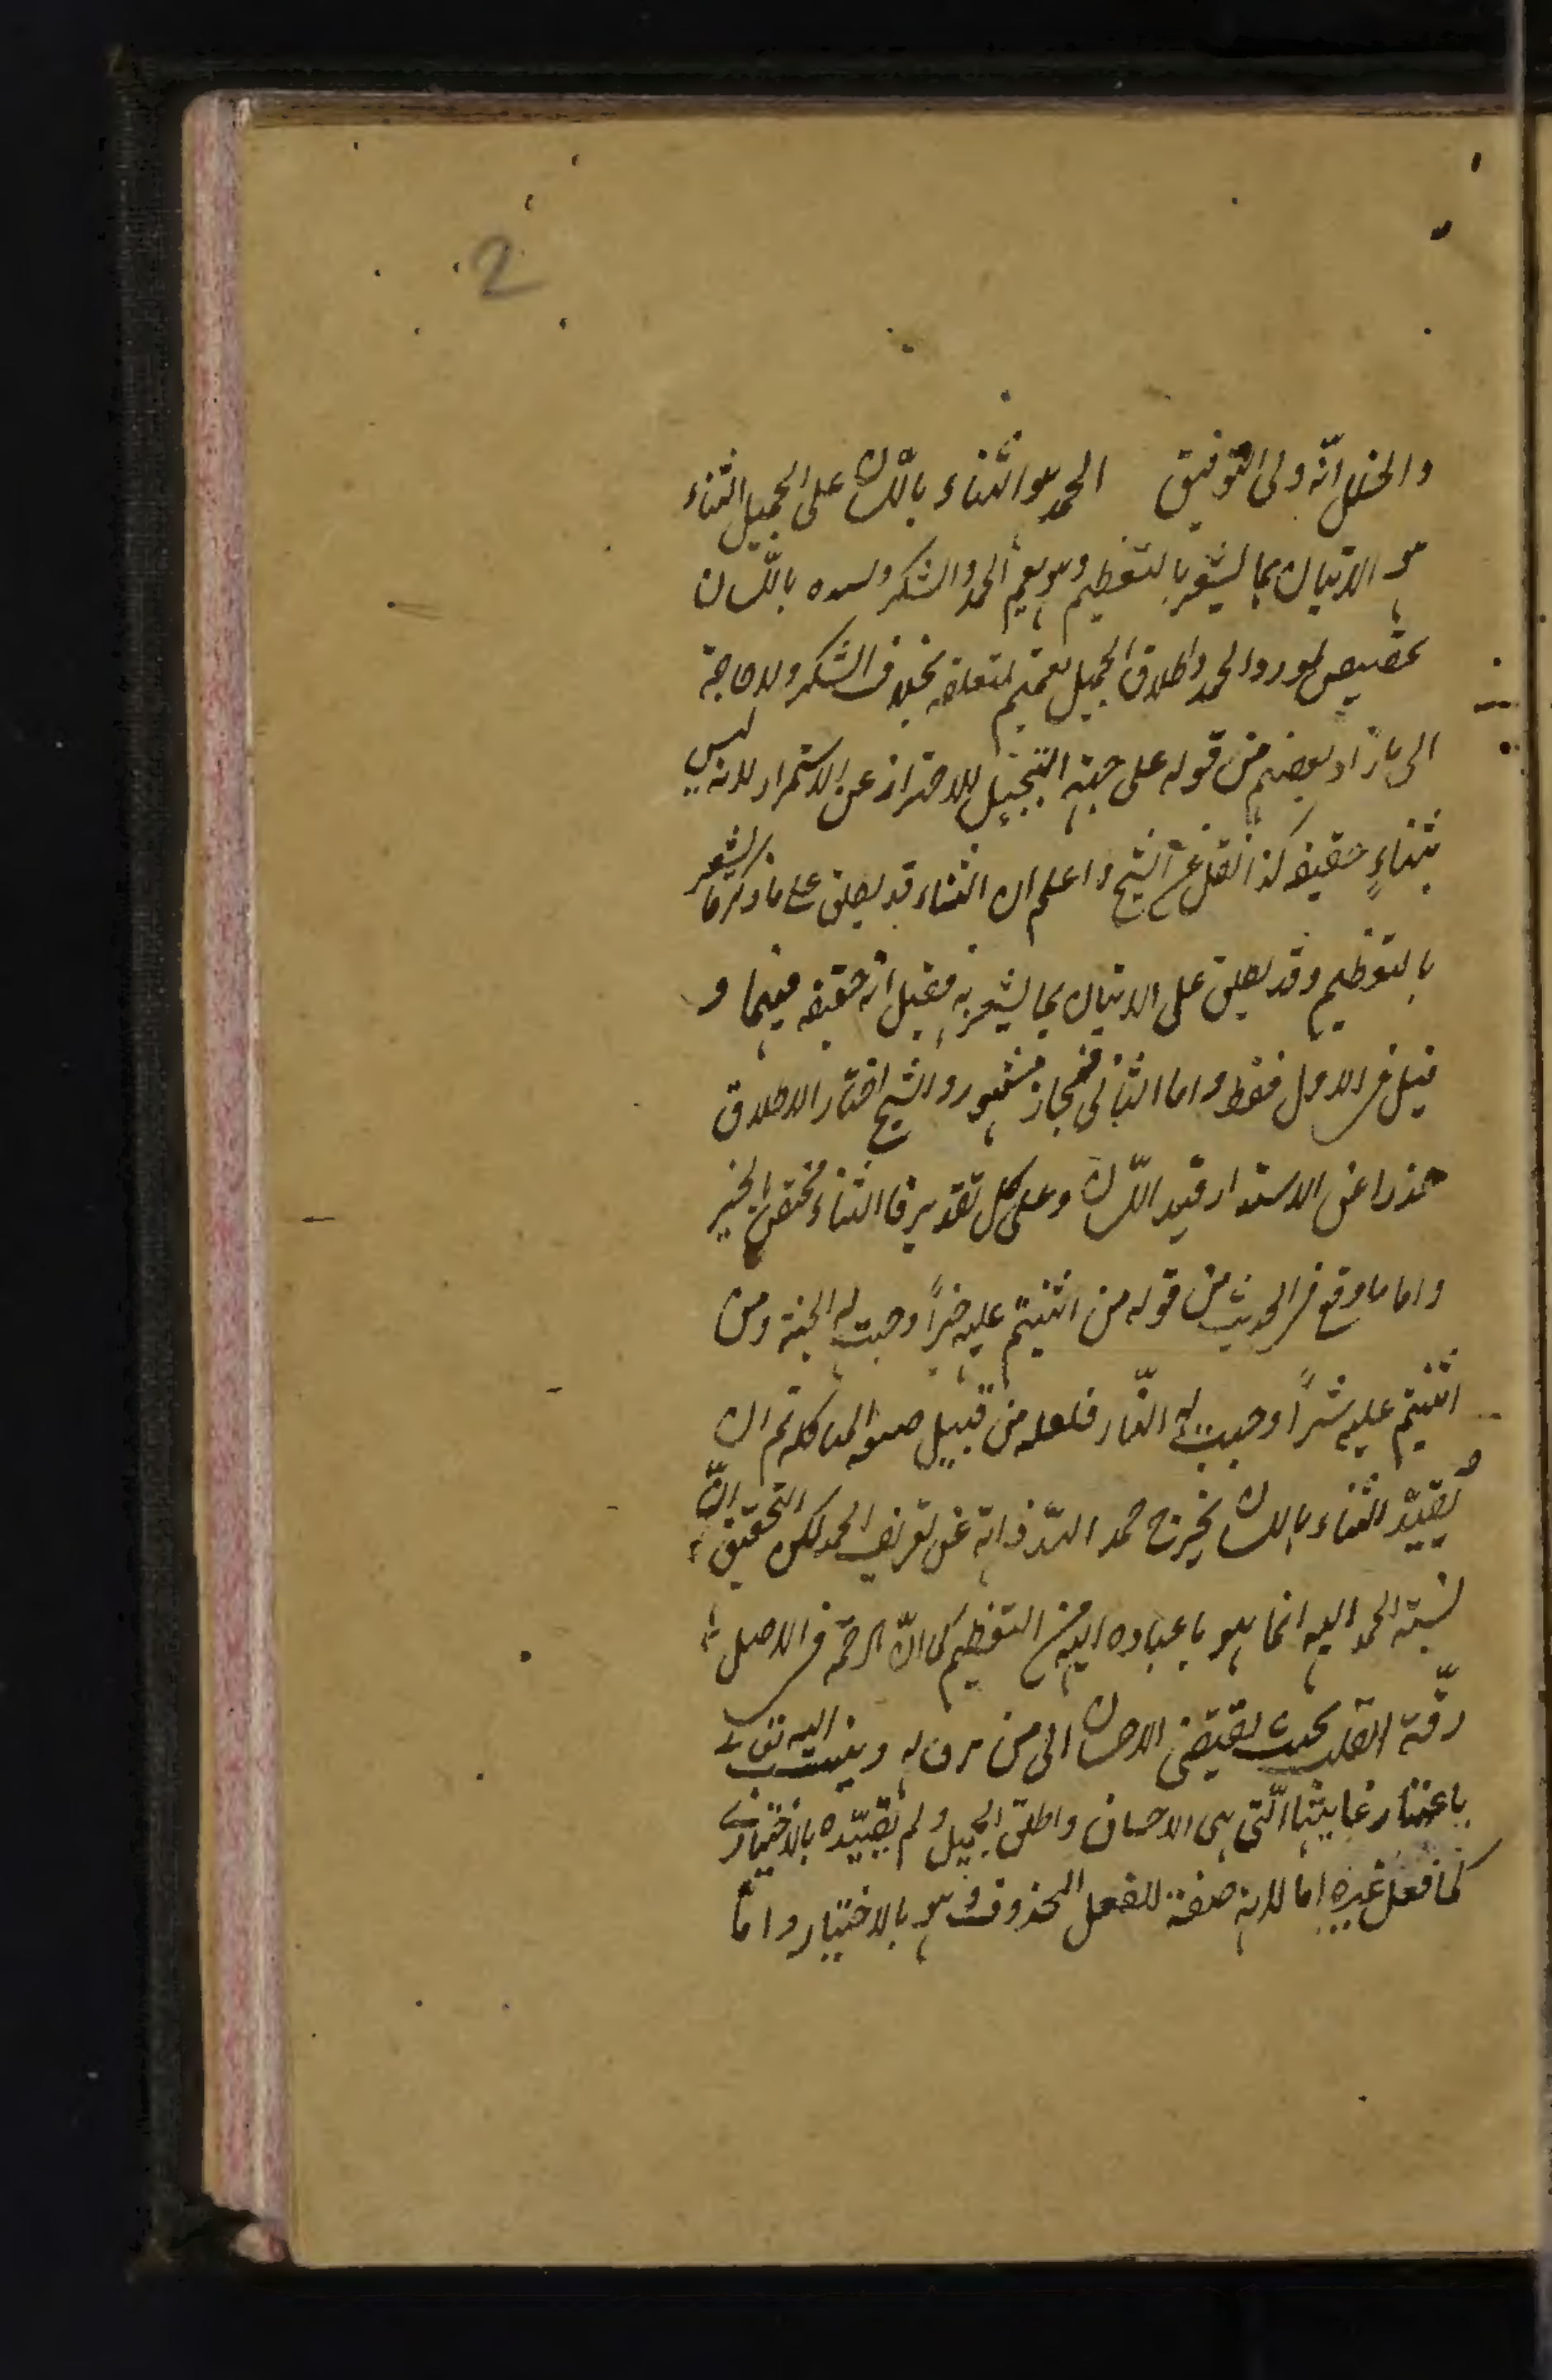 2
والخلل انّه ولى التوفيق الحمد هو الثناء باللّسان على الجميل الثناء
هو الاتيان بما يشعر بالتعظيم وهو يعمّ الحمد والشكر و باللّسان
تخصيص لمورد الحمد واطلاق الجميل تعميم لمتعلقه بخلاف الشكر ولا حاجة
الى ما زاد بعضهم من قوله على جهة التبجيل للاحتراز عن لانه ليس
بثناءٍ حقيقة كذا نقل عن الشيخ واعلم ان الثناء قد يطلق على ما ذكر ما يشعر
بالتعظيم وقد يطلق على الاتيان بما يشعر به فقيل انّه حقيقه فيهما و
قيل فى الاول فقط واما الثانى فمجاز مشهور والشيخ اختار الاطلاق
حذرا عن الاستدراك قيد اللّسان وعلى كل تقدير فالثناء مختصّ بالخير
واما ما وقع فى الحديث من قوله من اثنيتم عليه خيراً وجبت له الجنة ومن
اثنيتم عليه شراً وجبت له النّار فلعله من قبيل المشاكله ثم ان
يُقيّد الثناء باللسان يخرج حمد اللّه ذاته عن تعريف الحمد لكن التحقيق انّ
نسبة الحمد اليه انما هو باعتبار من التعظيم كما انّ الرحمة فى الاصل
رقّة القلب بحيث يقتضى الاحسان الى من رق له وينسب اليه تعالى
باعتبار غايتها الّتى هى الاحسان واطلق الجميل ولم يقيّده بالاختيارى
كما فعل غيره اما لانه صفة للفعل المحذوف وهو بالاختيار واما